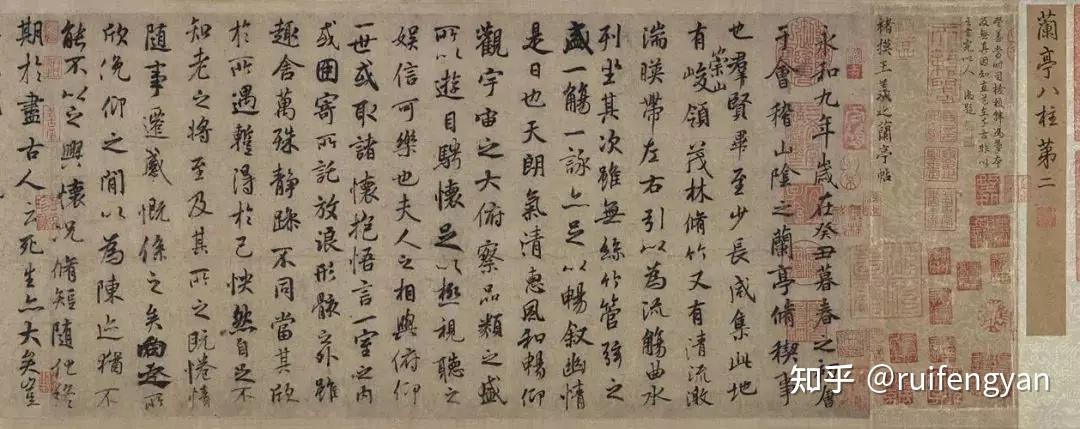 蘭亭八柱第二
褚摸王羲之蘭亭帖
永和九年歲在癸丑暮春之初會
于會稽山陰之蘭亭脩稧事
也羣賢畢至少長咸集此地
有崇山峻領茂林脩竹又有清流激
湍暎帶左右引以為流觴曲水
列坐其次雖無絲竹管弦之
盛一觴一詠亦足以暢敘幽情
是日也天朗氣清惠風和暢仰
觀宇宙之大俯察品類之盛
所以遊目騁懷足以極視聽之
娛信可樂也夫人之相與俯仰
一世或取諸懷抱悟言一室之內
或因寄所託放浪形骸之外雖
趣舍萬殊靜躁不同當其欣
於所遇蹔得於己怏然自足不
知老之將至及其所之既惓情
隨事遷感慨係之矣向之所
欣俛仰之間以為陳迹猶不
能不以之興懷況脩短隨化終
期於盡古人云死生亦大矣豈
知乎 @ruifengyan